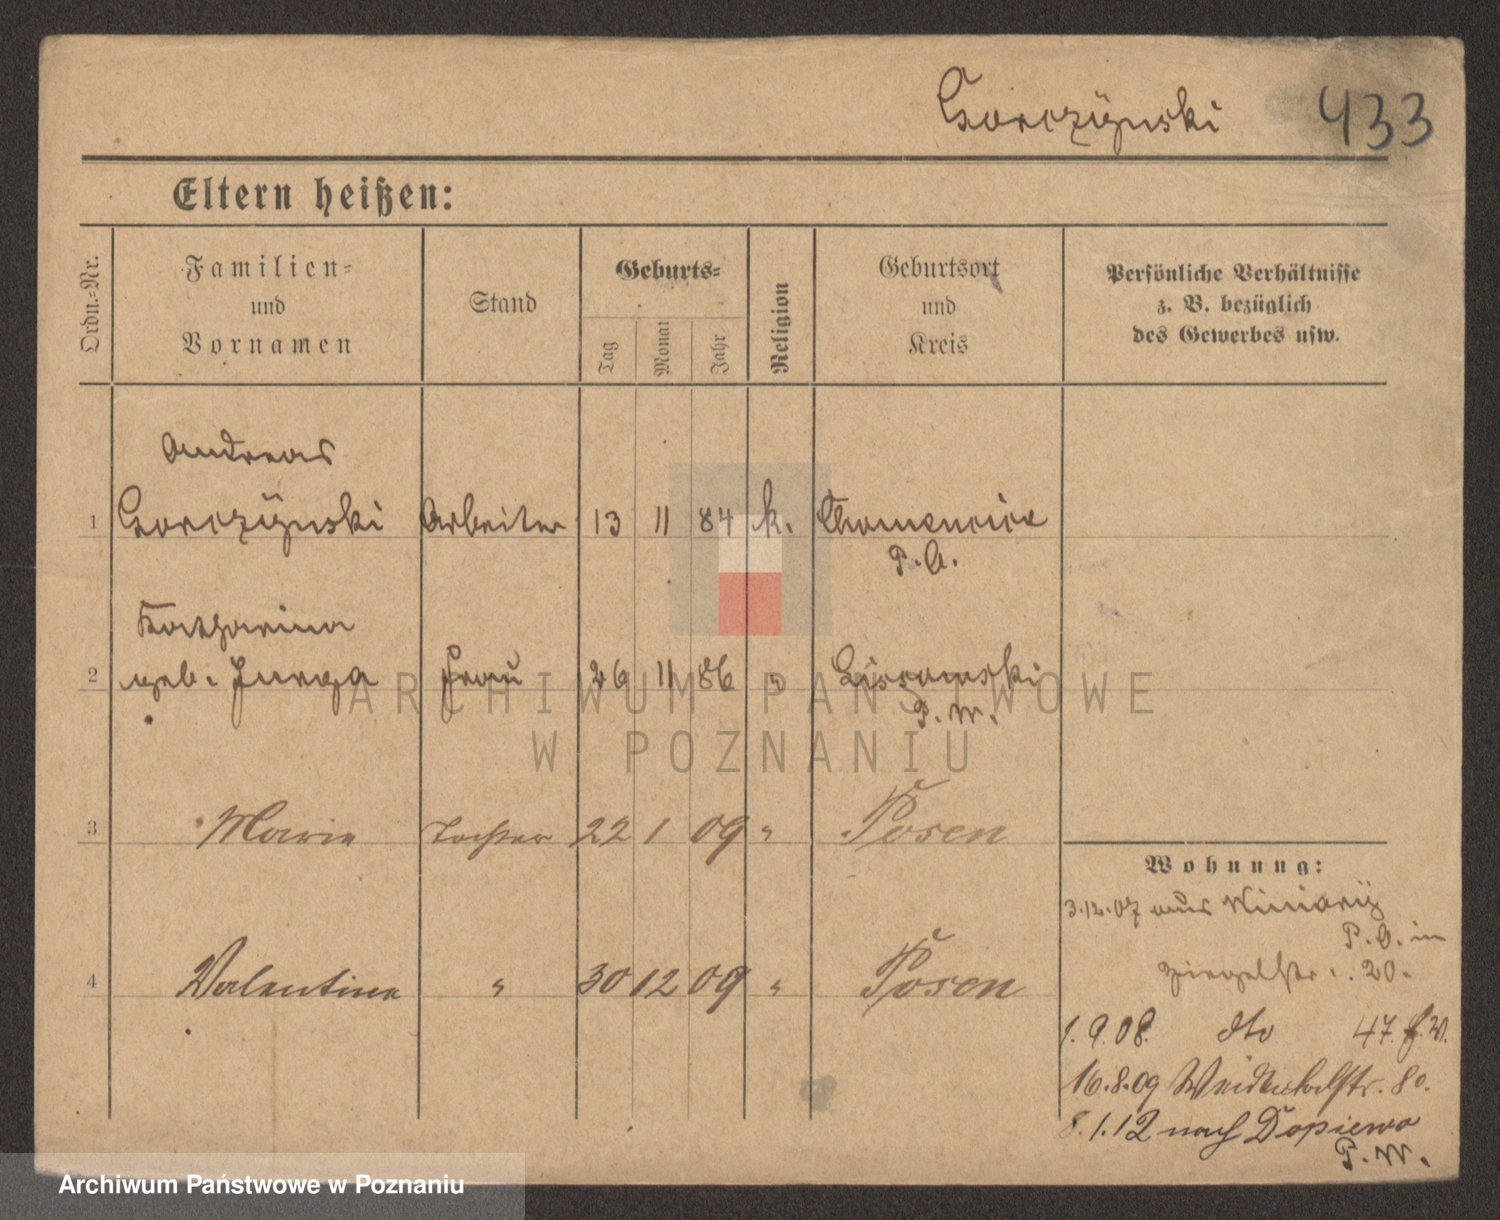 Gorczÿnski 433
Eltern heißen:
Ordn.=Nr.
Familien=
und
Vornamen
Stand
Geburts=
Tag
Monat
Jahr
Religion
Geburtsort
und
Kreis
Persönliche Verhältnisse
z. B. bezüglich
des Gewerbes usw.
Andreas
1 Gorczÿnski Arbeiter 13 11 84 k. Chomencice
P. O.
Katharina
2 geb. Jurga Frau 26 11 86 " 
P. W.
3 Marie Tochter 22 1 09 " Posen
Wohnung:
3.12.07 aus Winiarÿ
P. O. in
Ziegelstr. 20.
4 Valentine " 30 12 09 " Posen
1.9.08. dto 47.
16.8.09 80.
8.1.12 nach Dopiewo
P. W.
ARCHIWUM PAŃSTWOWE
W POZNANIU
Archiwum Państwowe w Poznaniu